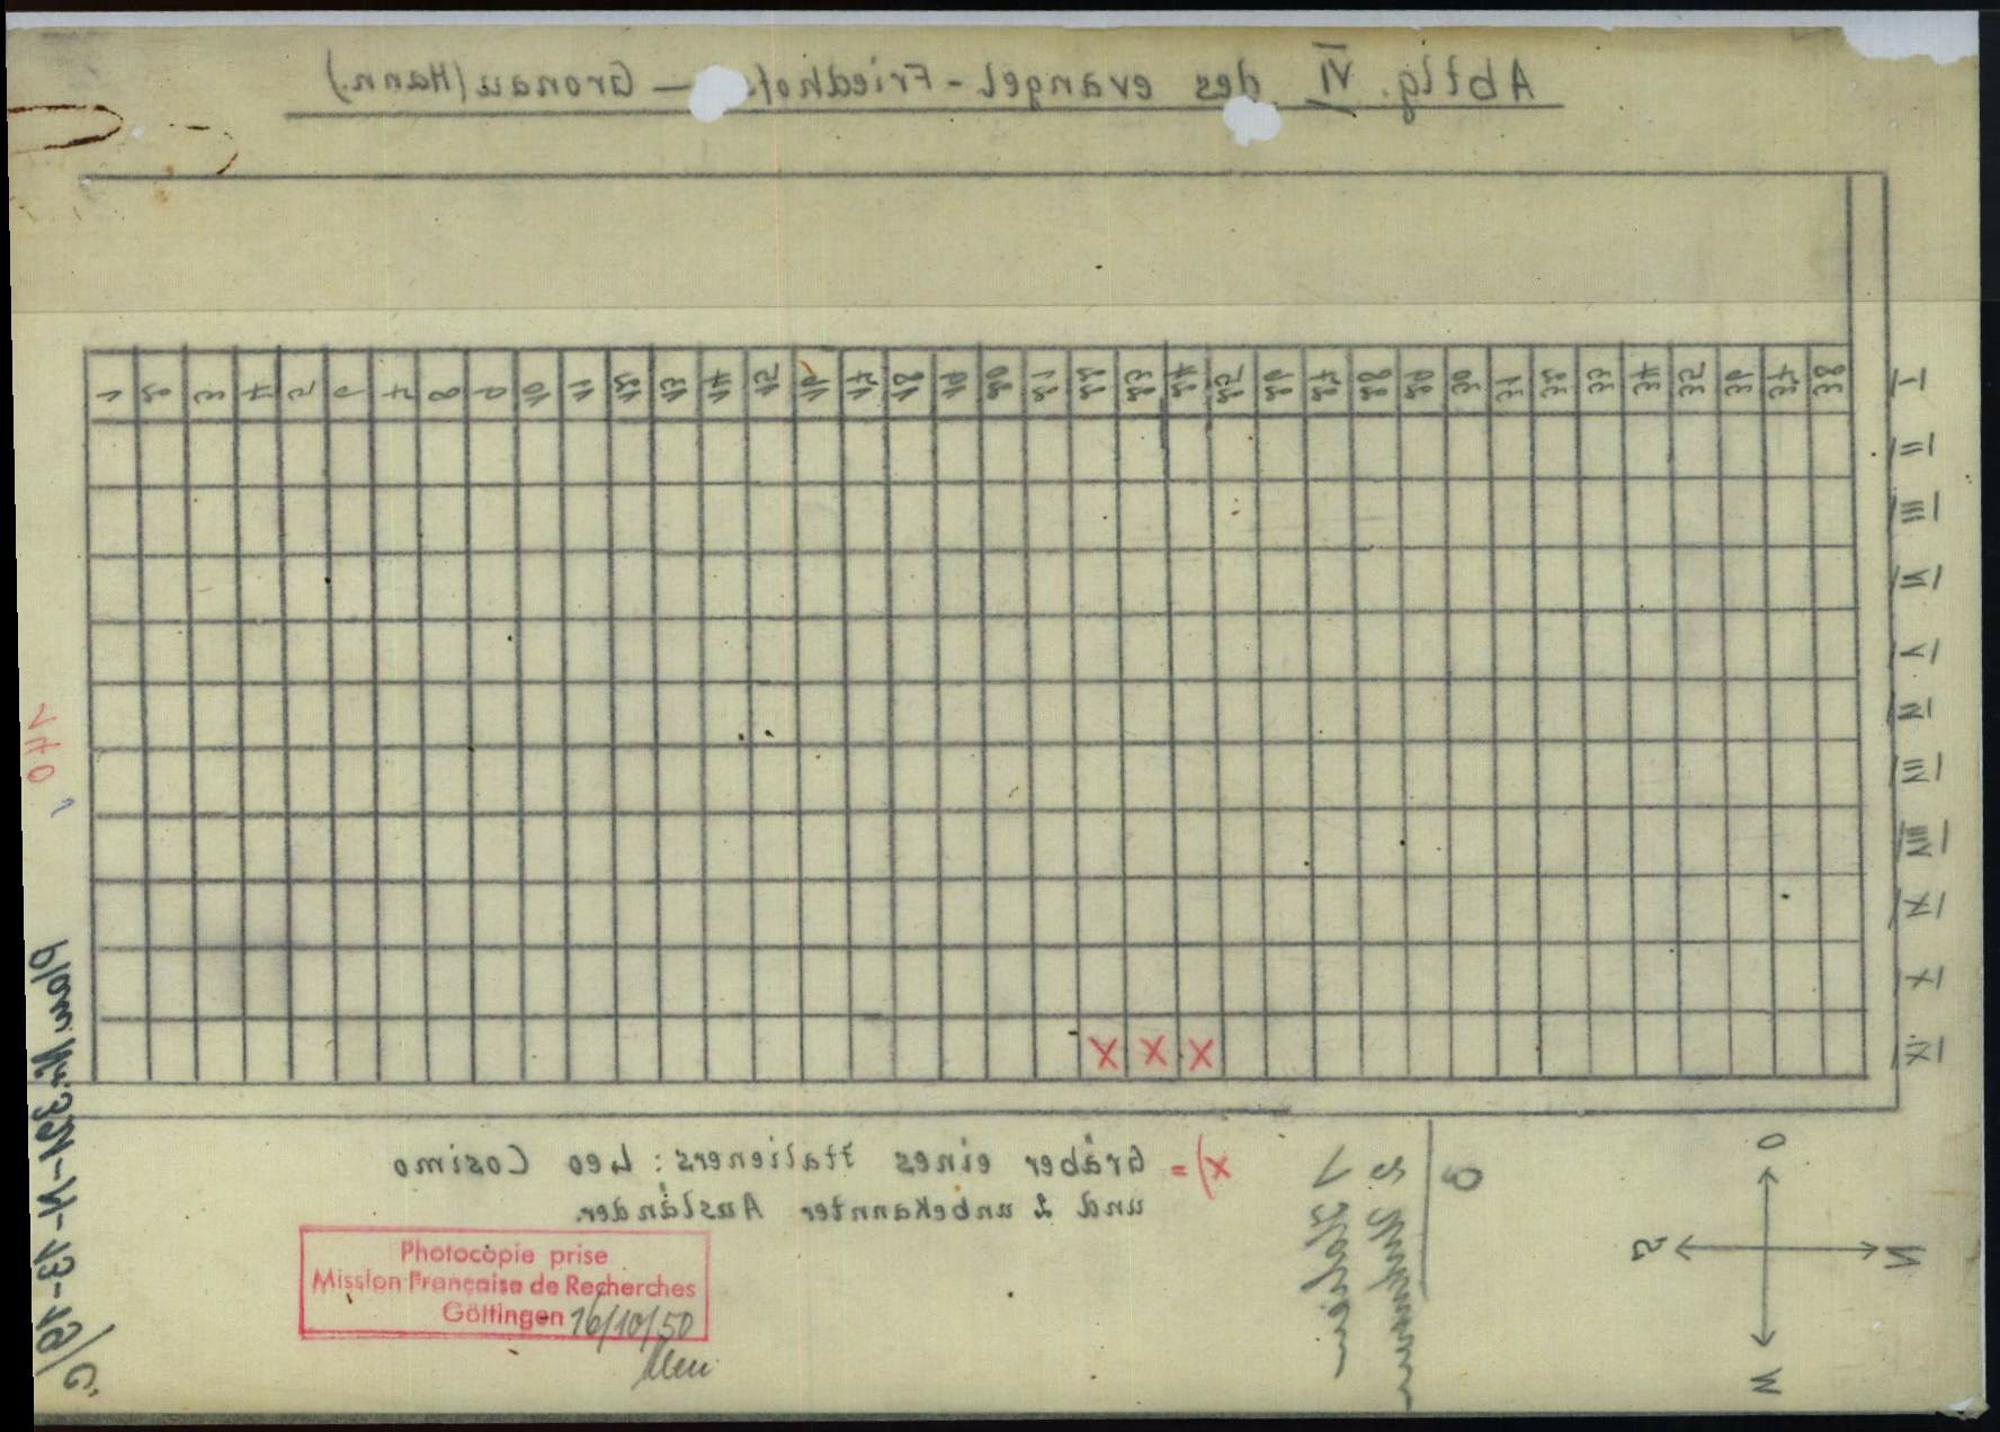 Abtlg. VI des evangel-Friedhofs – Gronau (Hann.)
1 2 3 4 5 6 7 8 9 10 11 12 13 14 15 16 17 18 19 20 21 22 23 24 25 26 27 28 29 30 31 32 33 34 35 36 37 38
I
II
III
IV
V
VI
VII
VIII
IX
X
XI
X X X
x) = Gräber eines Italieners: Leo Cosimo
und 2 unbekannter Ausländer.
O
S N
W
Photocopie prise
Mission Française de Recherches
Göttingen 16/10/50
140